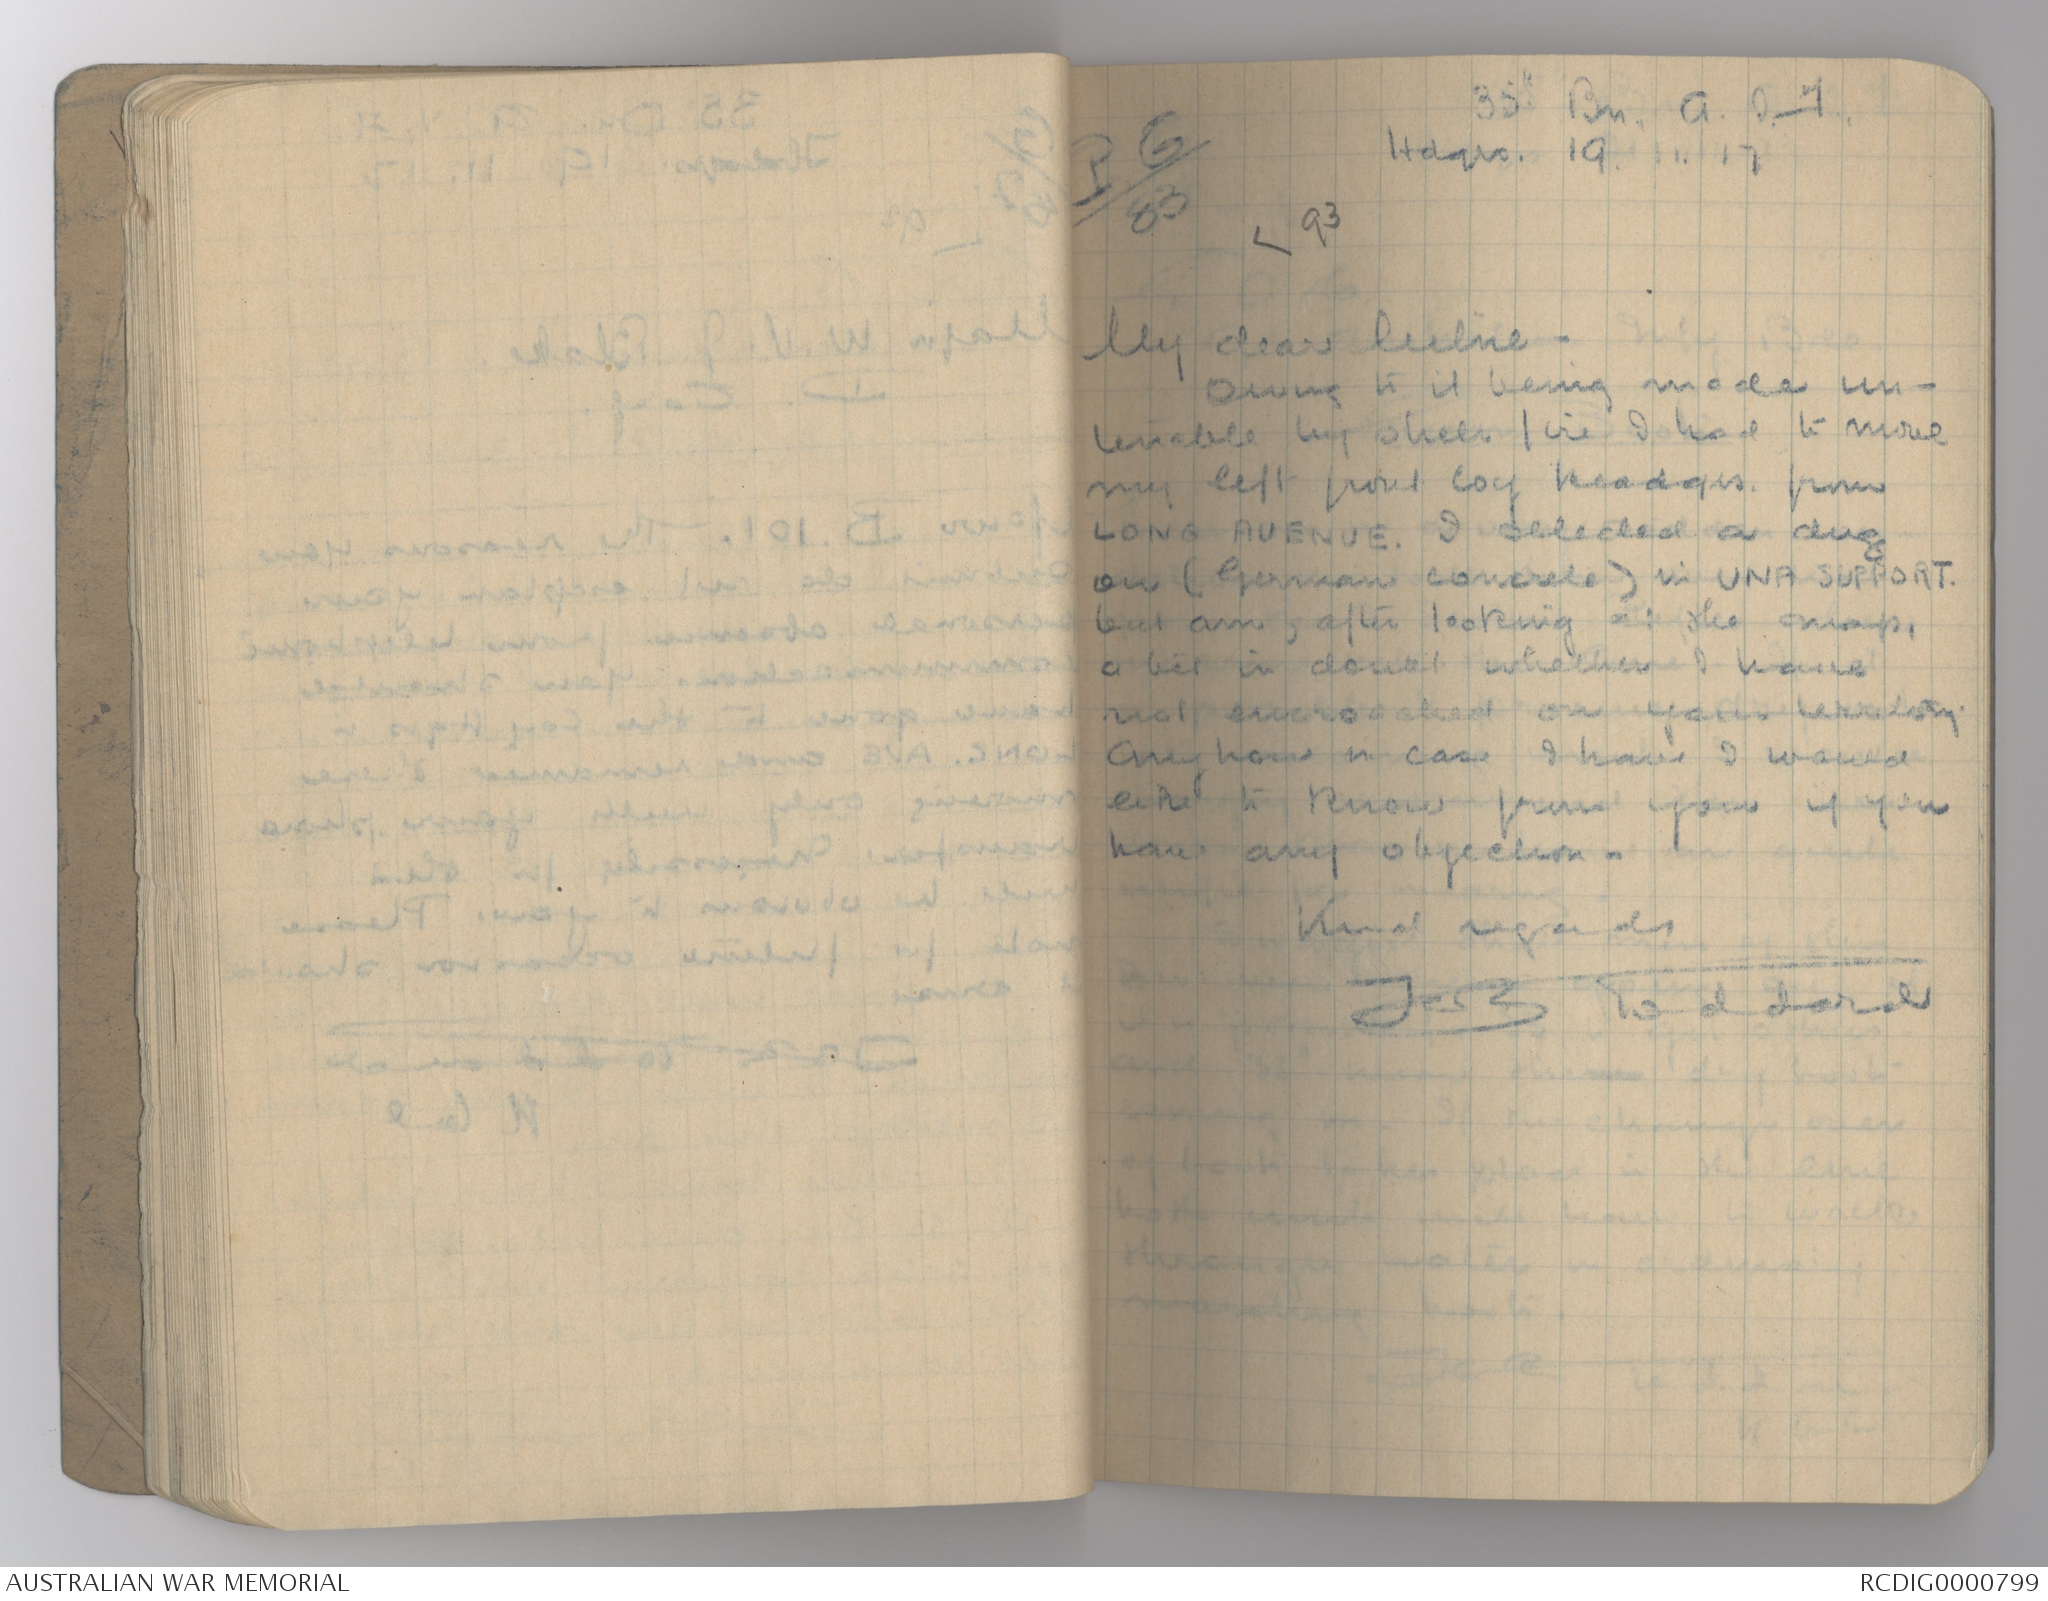 35th Bn. A. I. F.
Hdqrs. 19. 11. 17
P G
83
93
My dear Milne -
Owing to it being made un-
tenable by shell fire I had to move
my left front Coy Headqrs. from
LONG AVENUE. I selected a dug
out (German concrete) in UNA SUPPORT.
but am, after looking at the map,
a bit in doubt whether I have
not encroached on your territory.
Anyhow in case I have I would
like to know from you if you
have any objection -
Kind regards
Goddard
AUSTRALIAN WAR MEMORIAL
RCDIG0000799